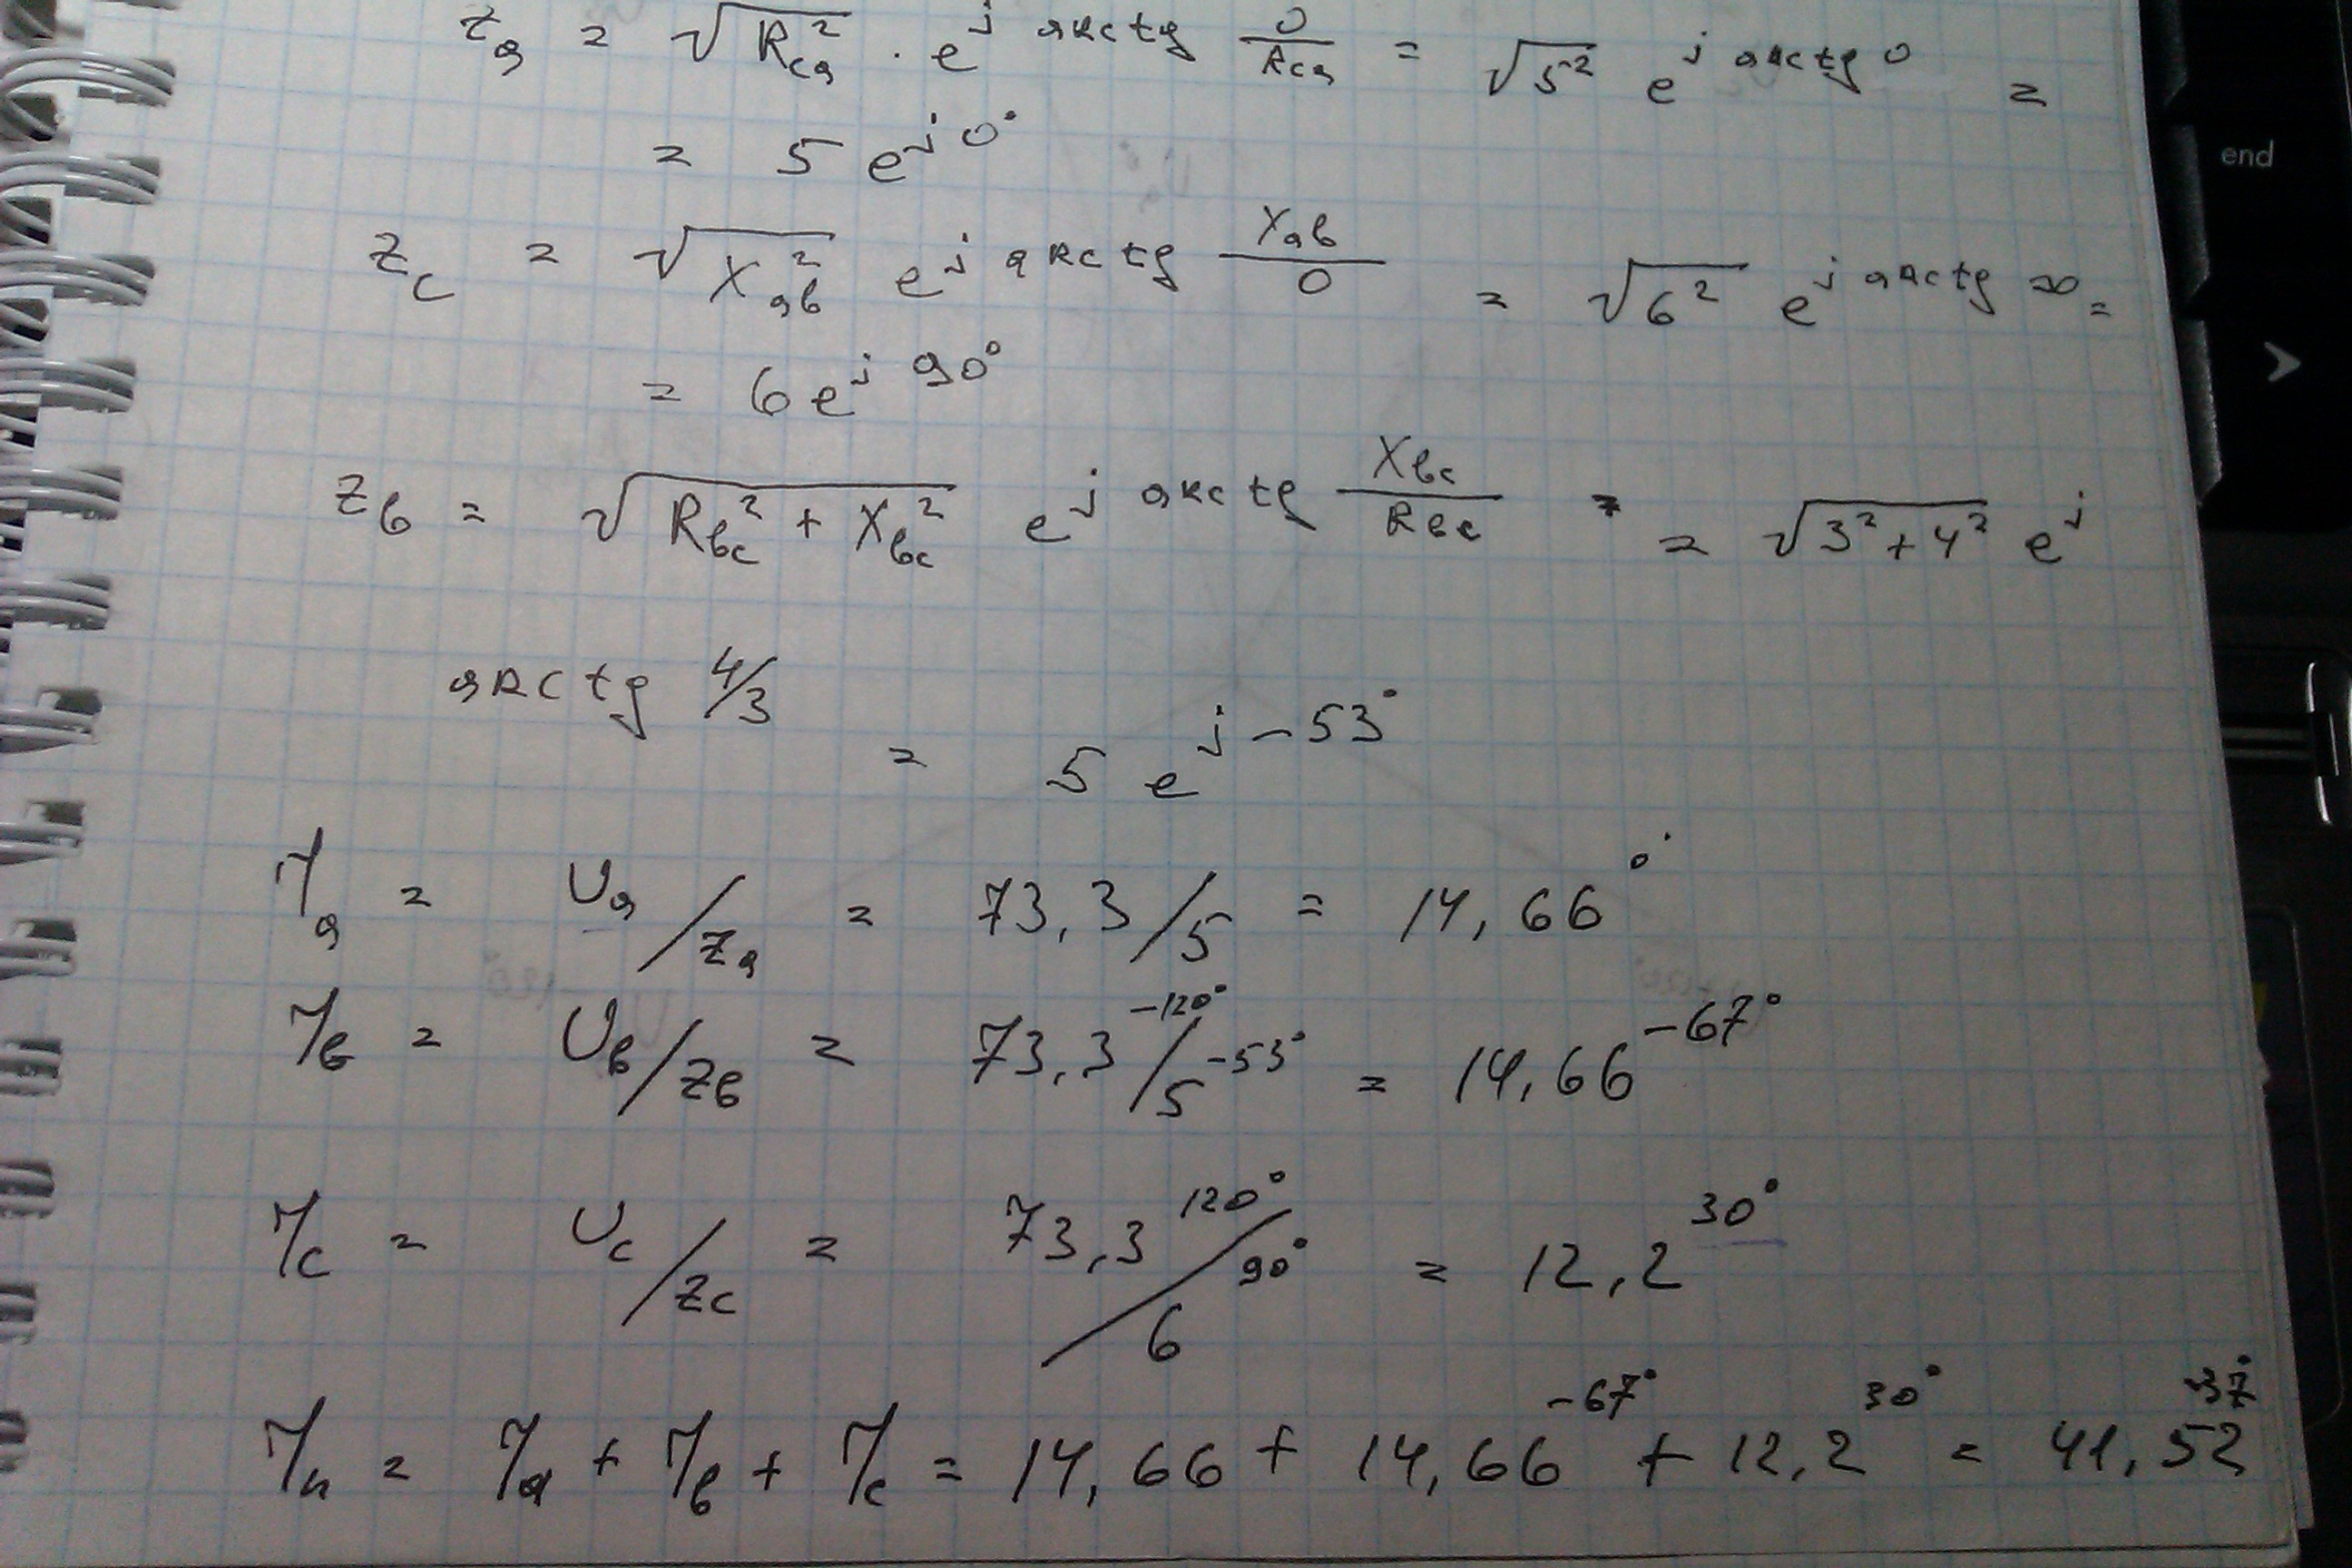 Za = √Rca² · e^j arctg 0/Rca = √5² e^j arctg 0 =
= 5 e^j 0°
Zc = √Xab² e^j arctg Xab/0 = √6² e^j arctg ∞ =
= 6 e^j 90°
Zb = √Rbc² + Xbc² e^j arctg Xbc/Rbc = = √3²+4² e^j
arctg 4/3
= 5 e^j -53°
Ia = Ua/Za = 73,3/5 = 14,66^0°
Ib = Ub/Zb = 73,3^-120°/5^-53° = 14,66^-67°
Ic = Uc/Zc = 73,3^120°/6^90° = 12,2^30°
In = Ia + Ib + Ic = 14,66 + 14,66^-67° + 12,2^30° = 41,52^-37°
end